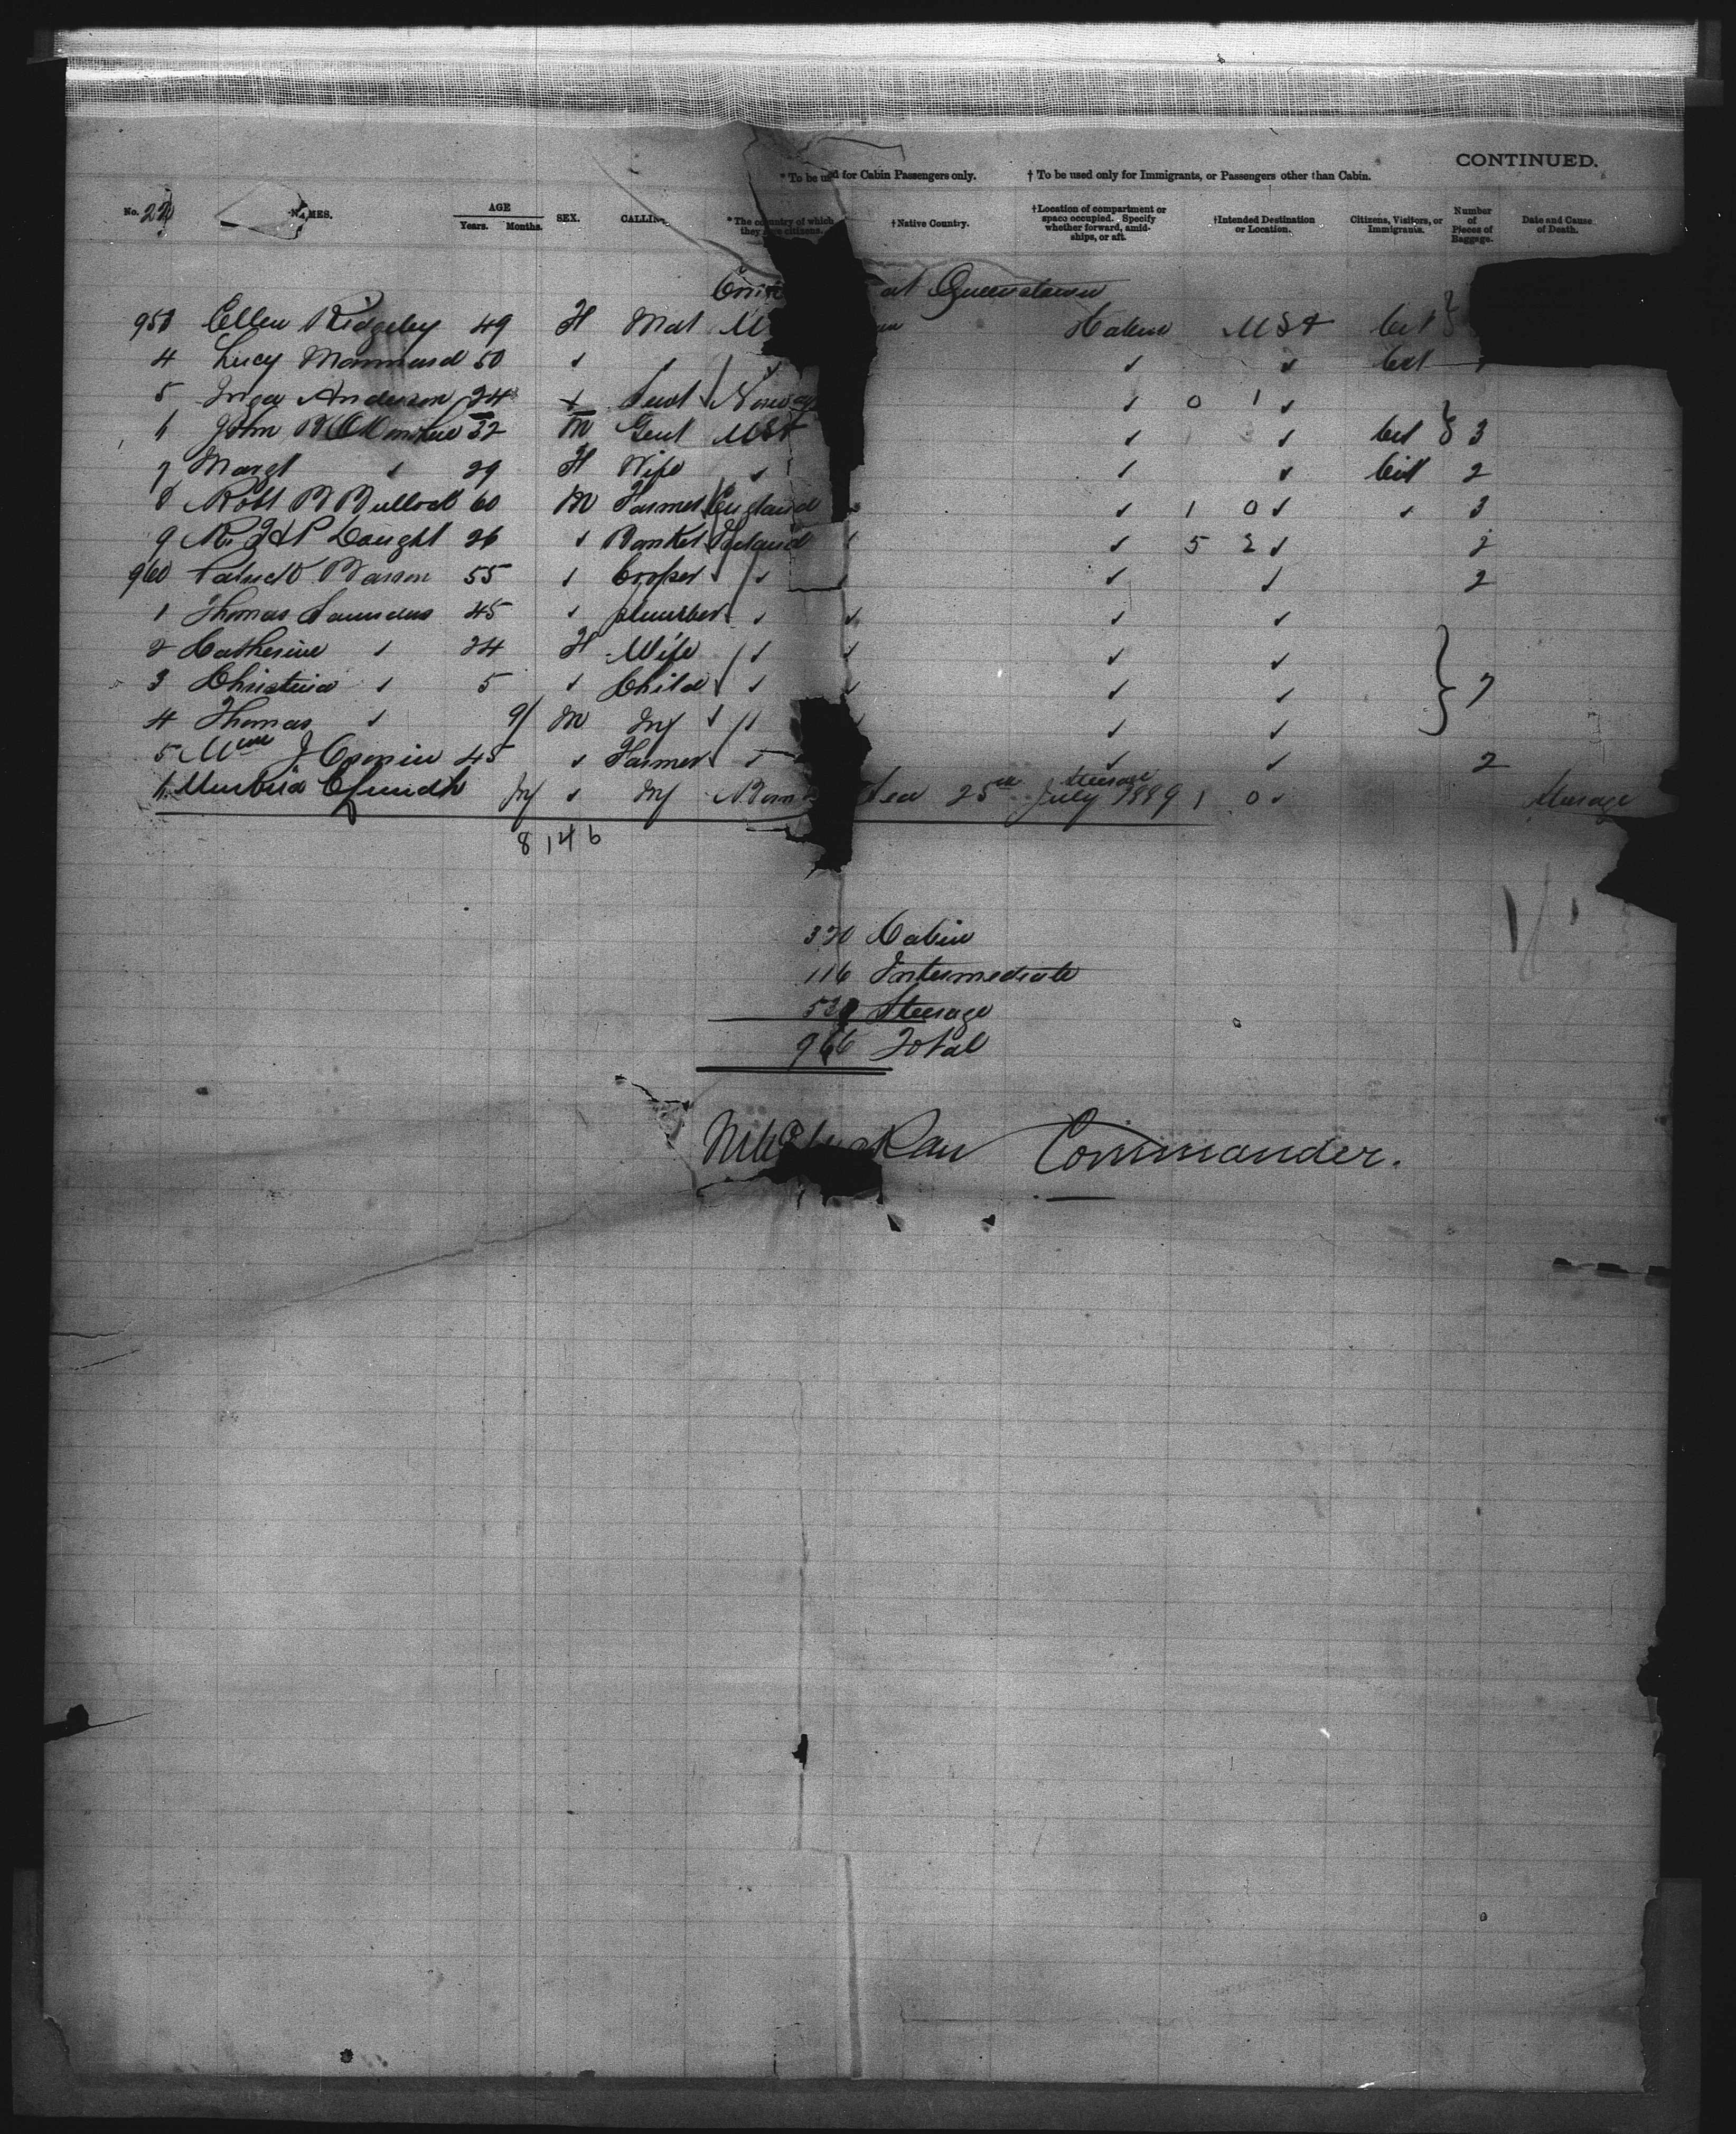 CONTINUED.
* To be used for Cabin Passengers only. † To be used only for Immigrants, or Passengers other than Cabin.
No. 22 NAMES. AGE Years. Months. SEX. CALLIN *The country of which they are citizens. †Native Country. †Location of compartment or space occupied. Specify whether forward, amidships, or aft. †Intended Destination or Location. Citizens, Visitors, or Immigrants. Number of Pieces of Baggage. Date and Cause of Death.
at Queenstown
953 Ellen Ridgeley 49 F Mat Cabin USA Cit
4 Lucy 50 ✓ ✓ ✓ ✓ Cit
5 Inga Anderson 24 Norway ✓ 0 1 ✓
6 John 32 M Gent USA ✓ ✓ Cit 3
7 Margt ✓ 29 F Wife ✓ ✓ ✓ Cit 2
8 Robt B Bullock 60 M Farmer England ✓ 1 0 ✓ ✓ 3
9 26 ✓ Banker Ireland ✓ 5 2 ✓ 2
960 Patrick 55 ✓ Cooper ✓ ✓ ✓ ✓ 2
1 Thomas Saunders 45 ✓ plumber ✓ ✓ ✓ ✓
2 Catherine ✓ 24 F Wife ✓ ✓ ✓ ✓
3 Christina ✓ 5 ✓ Child ✓ ✓ ✓ ✓ 7
4 Thomas ✓ 9/ M Inf ✓ ✓ ✓
5 Wm J Cronin 45 ✓ Farmer ✓ ✓ 2
6 Umbria Inf ✓ Inf Born Sea 25th July 1889 Steerage 1 0 ✓ Steerage
8 14 6
320 Cabin
116 Intermediate
530 Steerage
966 Total
Commander.